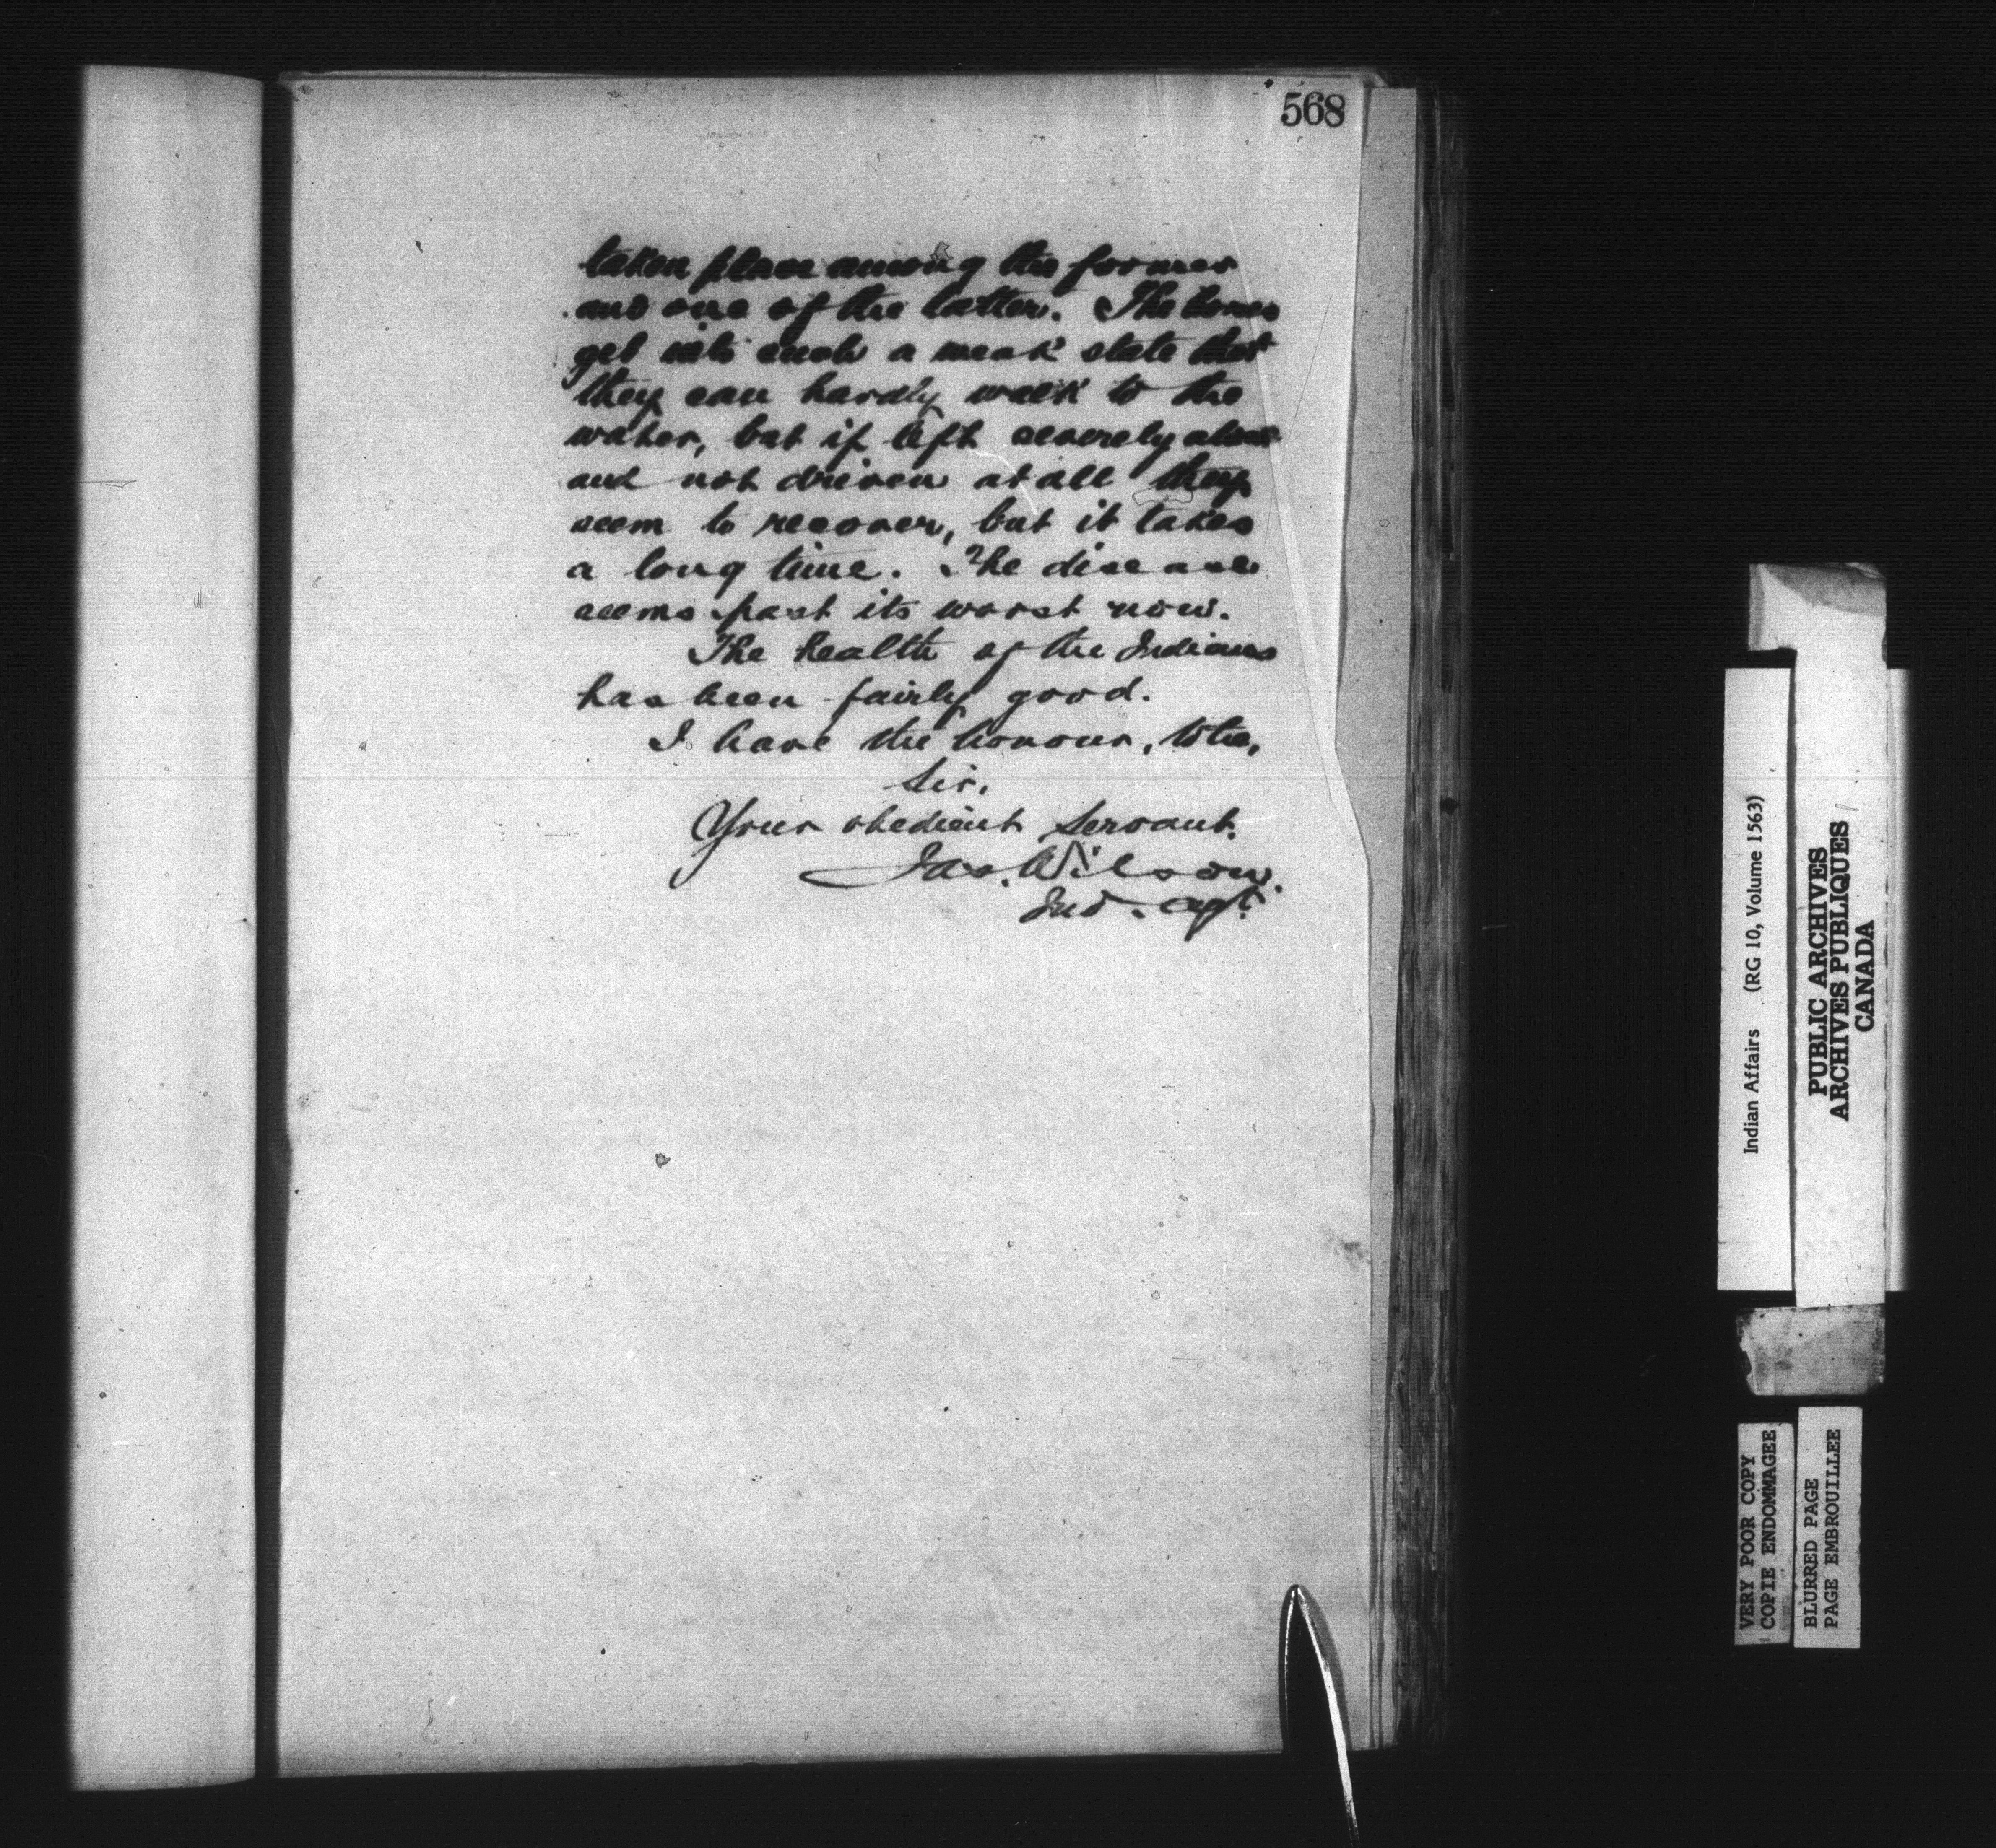 568
taken place among the former
and one of the latter. The horses
get into such a weak state that
they can hardly walk to the
water, but if left severely alone
and not driven at all they
seem to recover, but it takes
a long time. The disease
seems past its worst now.
The health of the Indians
has been fairly good.
I have the honour, to be,
Sir,
Your obedient Servant.
Jas. Wilson.
Ind. Agt.
Indian Affairs (RG 10, Volume 1563)
PUBLIC ARCHIVES
ARCHIVES PUBLIQUES
CANADA
VERY POOR COPY
COPIE ENDOMMAGEE
BLURRED PAGE
PAGE EMBROUILLEE